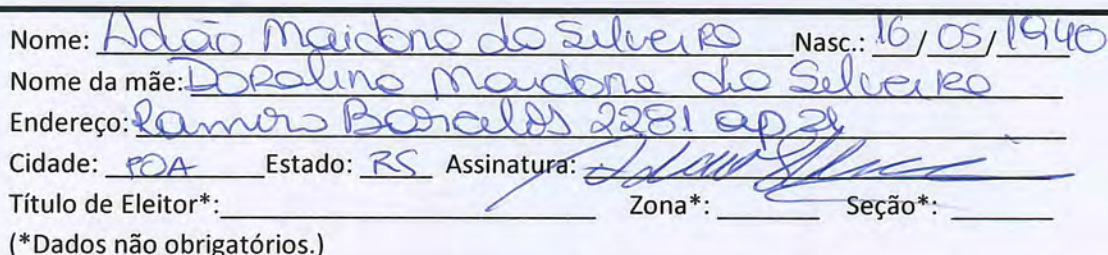 Nome: Adão Maidona da Silveira Nasc.: 16/05/1940
Nome da mãe: Doralina Maidona da Silveira
Endereço: Ramiro Barcelos 2281 ap
Cidade: POA Estado: RS Assinatura:
Título de Eleitor*: Zona*: Seção*:
(*Dados não obrigatórios.)